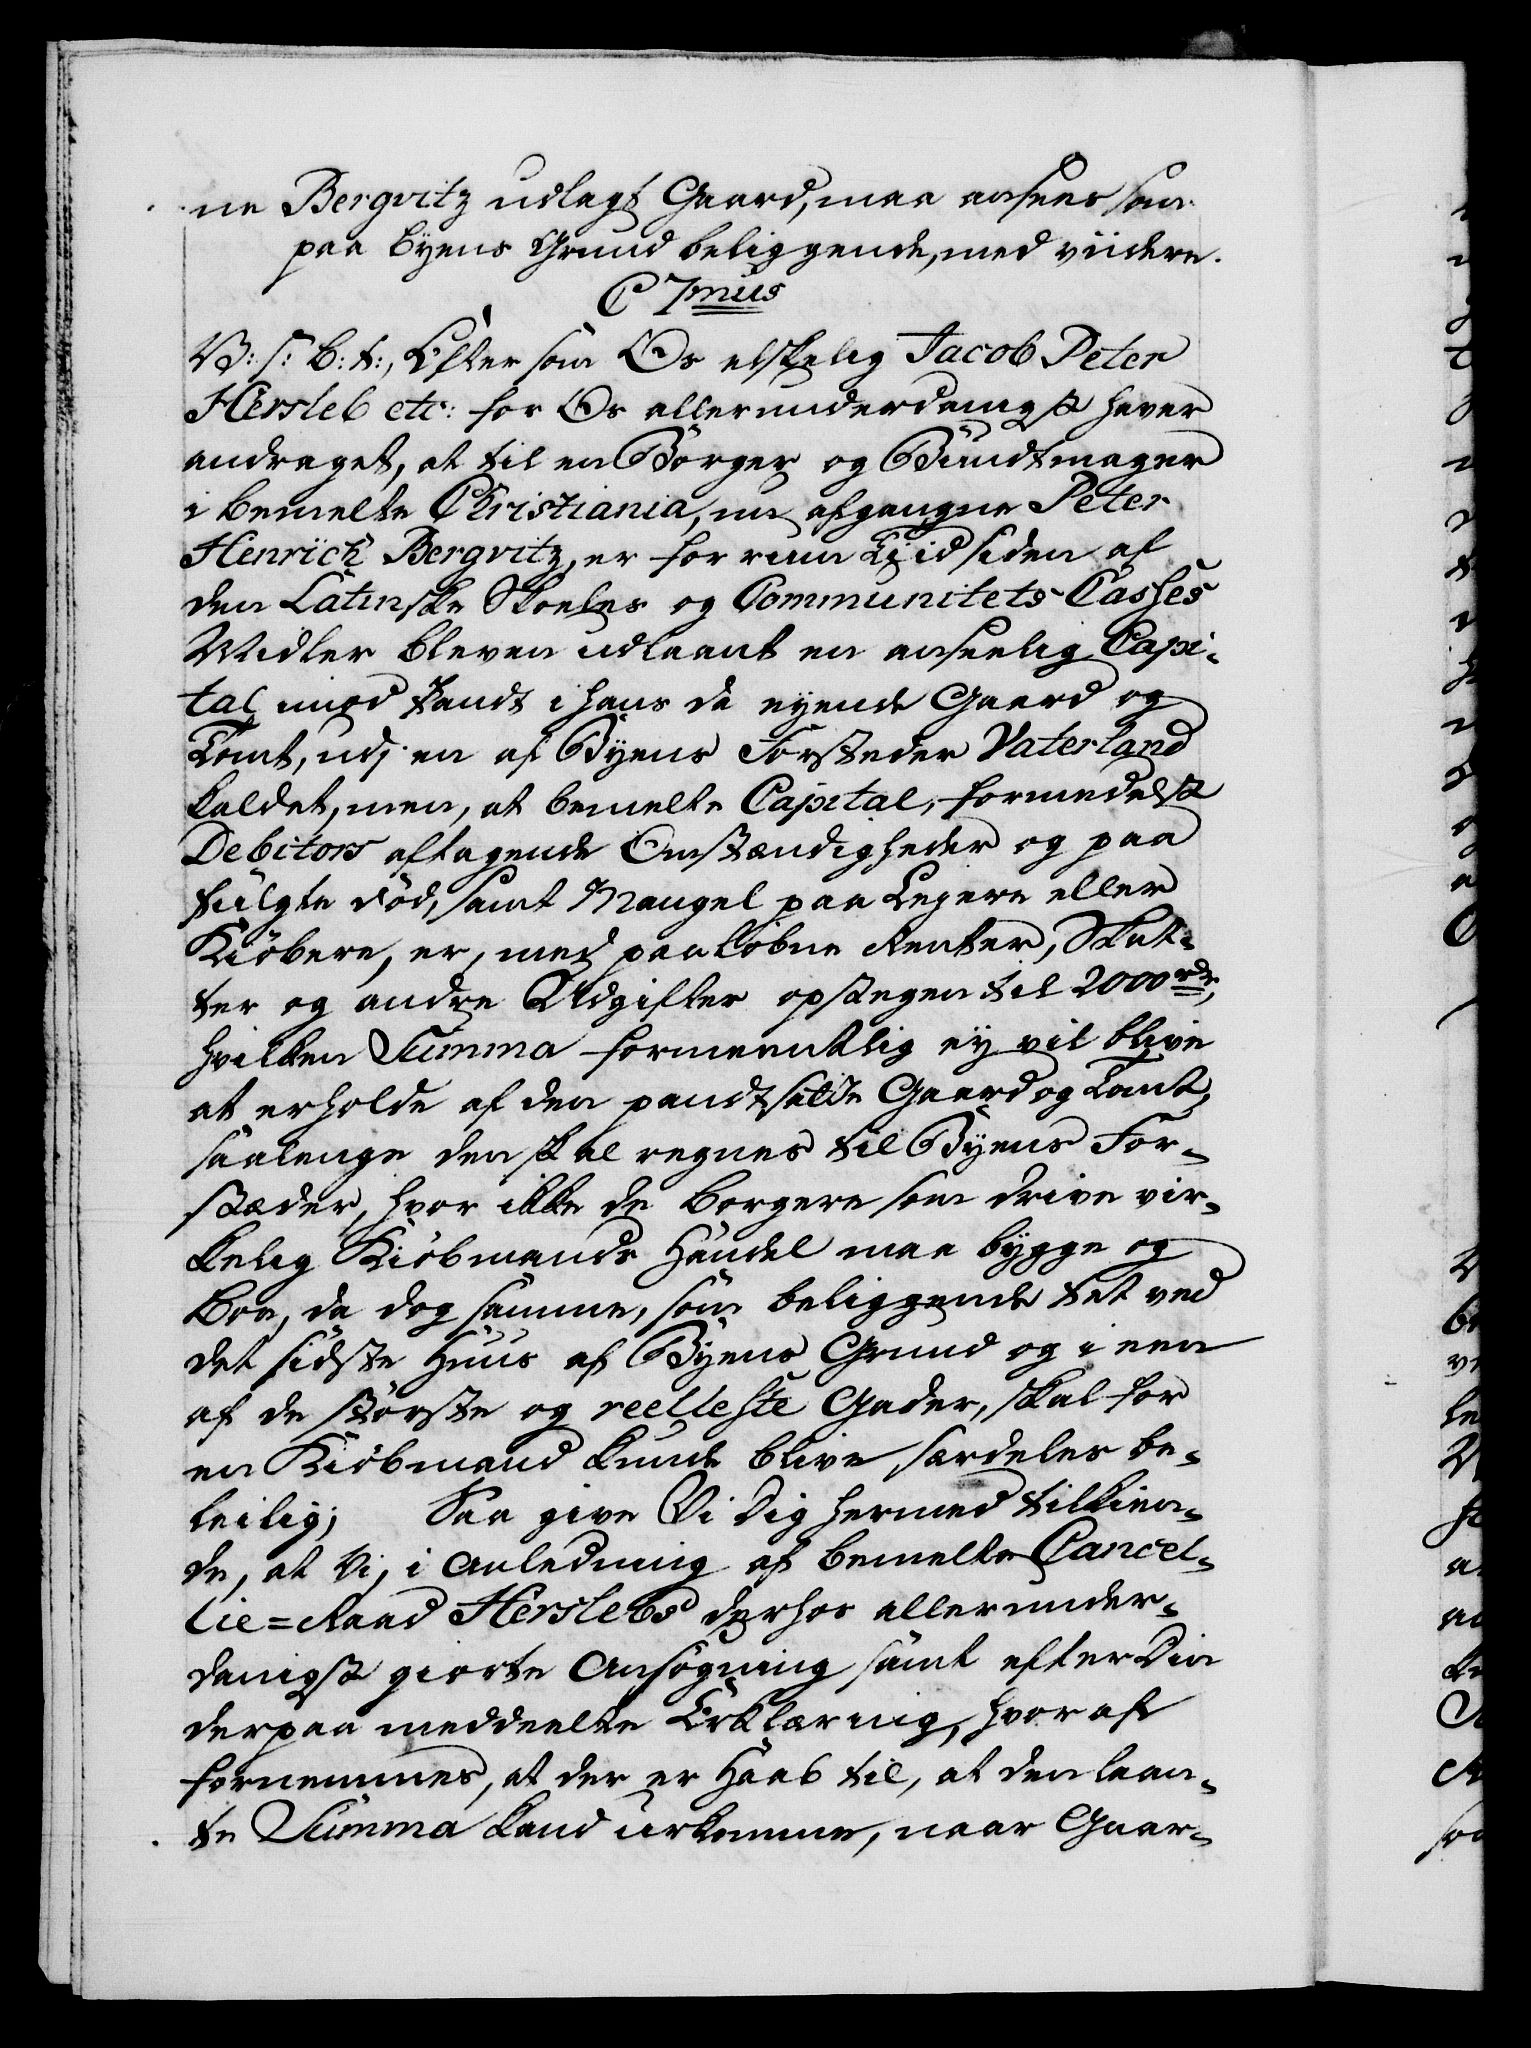 ne Bergvitz udlagt Gaard, maa ansees som
paa Byens Grund beliggende, med viidere.
C 7mus
V: s: B: t:, Eftersom Os elskelig Jacob Peter
Hersleb etc: for Os allerunderdanigst haver
andraget, at til en Borger og Bundtmager
i bemelte Christiania, nu afgangne Peter
Henrich Bergvitz, er for rum Tiid siden af
den Latinske Skoeles og Communitets Casses
Midler bleven udlaant en anseelig Capi-
tal imod Pandt i hans da eyende Gaard og
Tomt, udj en af Byens Forstæder Vaterland
kaldet, men, at bemelte Capital, formedelst
Debitors aftagende Omstændigheder og paa
fulgte Död, samt Mangel paa Lejere eller
Kiöbere, er, med paaløbne Renter, Skat-
ter og andre Udgifter opstegen til 2000 rdr,
hvilken Summa formeentlig ey vil blive
at erholde af den pandtsatte Gaard og Tomt,
saalenge den skal regnes til Byens For-
stæder, hvor ikke de Borgere som drive vir-
kelig Kiöbmands Handel maa bygge og
boe, da dog samme, som beliggende tet ved
det sidste Huus af Byens Grund og i een
af de störste og reelleste Gader, skal for
en Kiöbmand kunde blive særdeles be-
leilig; Saa give Vi Dig hermed tilkien-
de, at Vi, i Anledning af bemelte Cancel-
lie=Raad Herslebs derhos allerunder-
danigst giorte Ansøgning samt efter Din
derpaa meddeelte Erklæring, hvoraf
fornemmes, at der er Haab til, at den laan-
te Summa kand udkomme, naar Gaar-